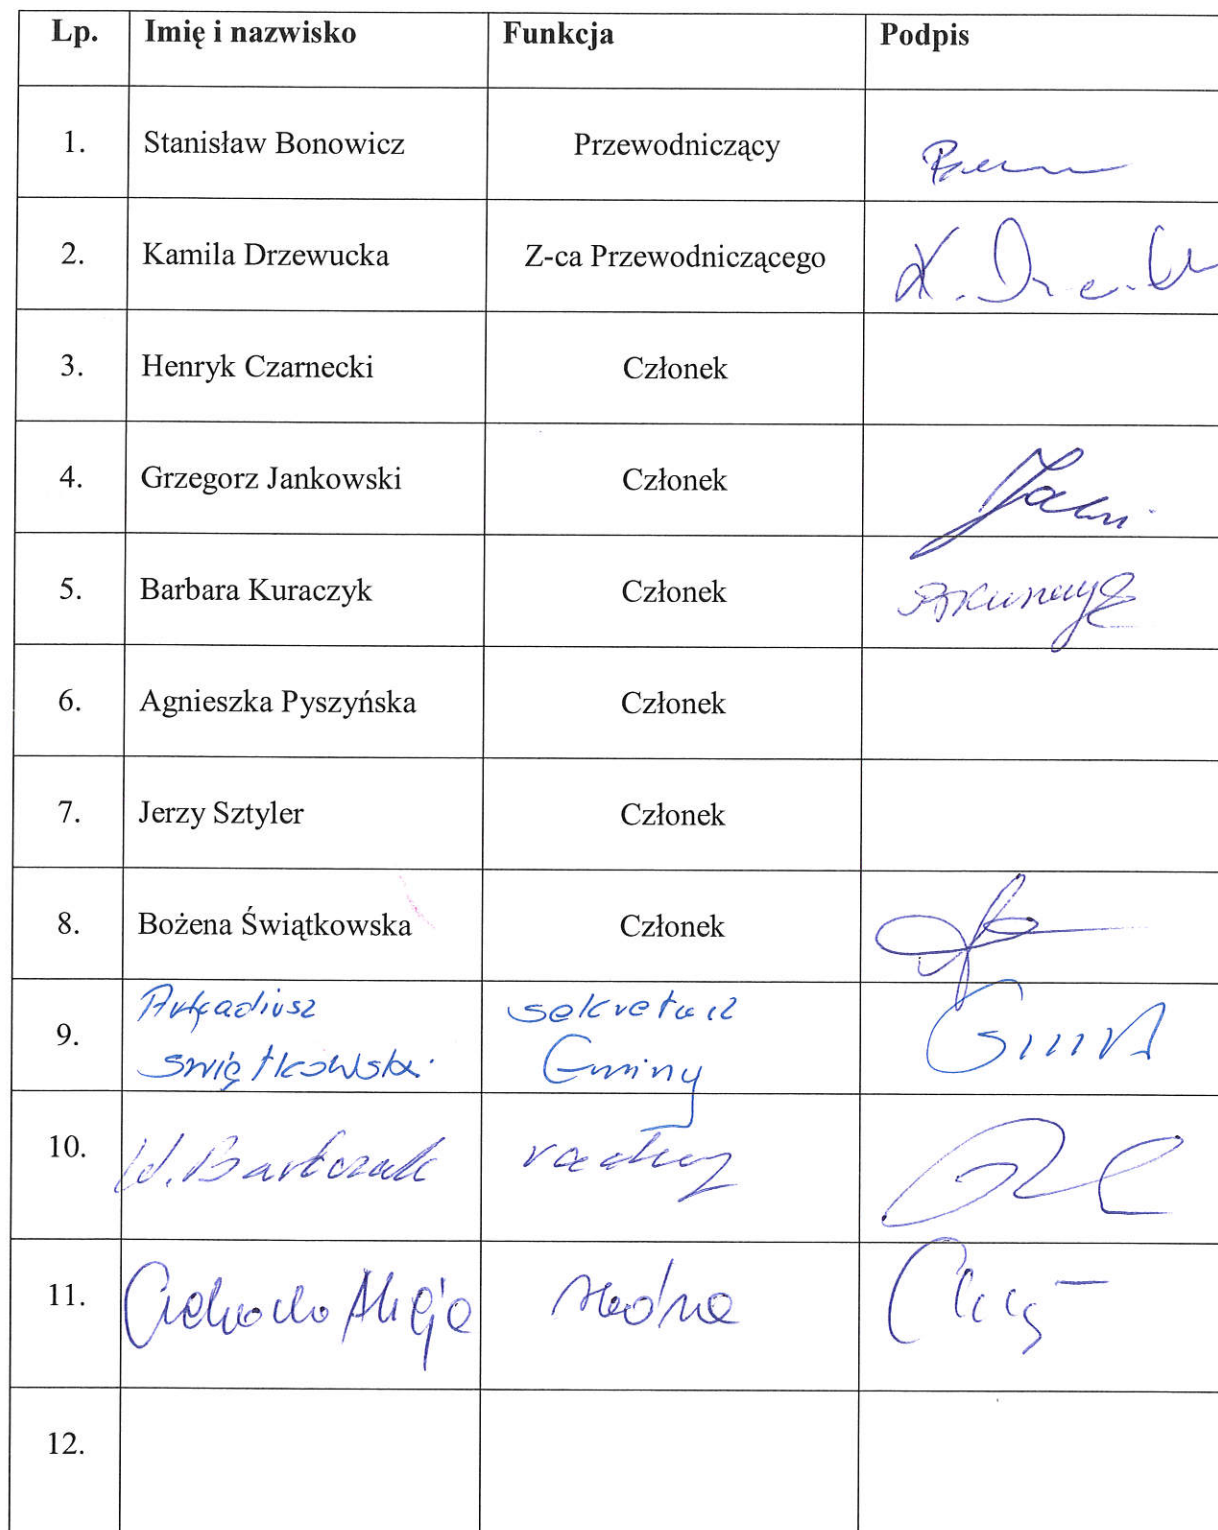 Lp. Imię i nazwisko Funkcja Podpis
1. Stanisław Bonowicz Przewodniczący
2. Kamila Drzewucka Z-ca Przewodniczącego
3. Henryk Czarnecki Członek
4. Grzegorz Jankowski Członek
5. Barbara Kuraczyk Członek
6. Agnieszka Pyszyńska Członek
7. Jerzy Sztyler Członek
8. Bożena Świątkowska Członek
9. Arkadiusz sekretarz
Świątkowski Gminy
10. W. Bartczak radny
11. Alicja radna
12.